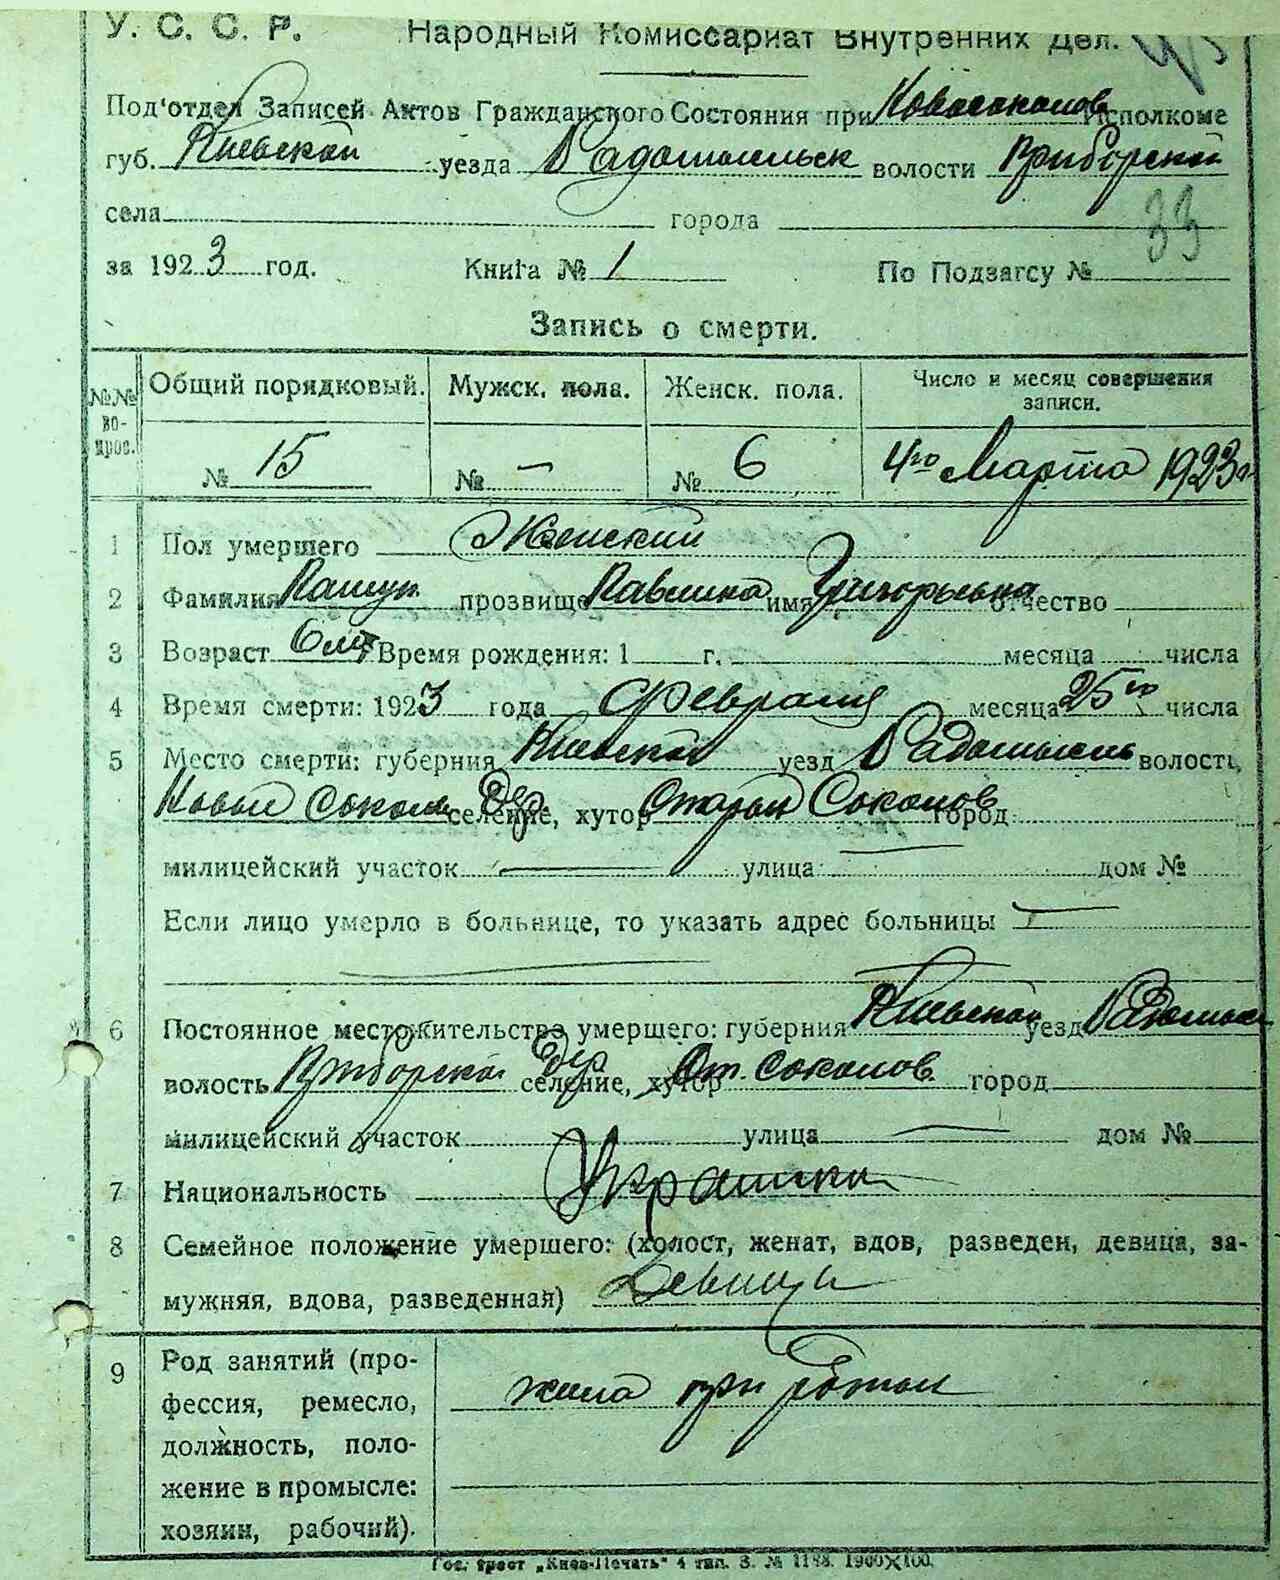 У. С. С. Р. Народный Комиссариат Внутренних Дел.
Под'отдел Записей Актов Гражданского Состояния при Новосоколов Исполкоме
губ. Киевской уезда Радомысльск волости Приборской
села города 33
за 1923 год. Книга № 1 По Подзагсу №
Запись о смерти.
№№ вопрос. Общий порядковый. Мужск. пола. Женск. пола. Число и месяц совершения записи.
№ 15 № — № 6 4го Марта 1923г
1 Пол умершего Женский
2 Фамилия прозвище Павлина имя Григорьевна отчество
3 Возраст 6 лет Время рождения: 1 г. месяца числа
4 Время смерти: 1923 года Февраля месяца 25го числа
5 Место смерти: губерния Киевской уезд Радомысль волость,
Новый Сокол Дер. селение, хутор Старый Соколов город
милицейский участок — улица — дом №
Если лицо умерло в больнице, то указать адрес больницы —
6 Постоянное местожительство умершего: губерния Киевской уезд Радомысл
волость Приборской Дер селение, хутор Ст. Соколов город
милицейский участок — улица — дом №
7 Национальность Украинка
8 Семейное положение умершего: (холост, женат, вдов, разведен, девица, за-
мужняя, вдова, разведенная) Девица
9 Род занятий (про-
фессия, ремесло,
должность, поло-
жение в промысле:
хозяин, рабочий).
жила при
Гос. трест „Киев-Печать" 4 тип. З. № 1188. 1900×100.